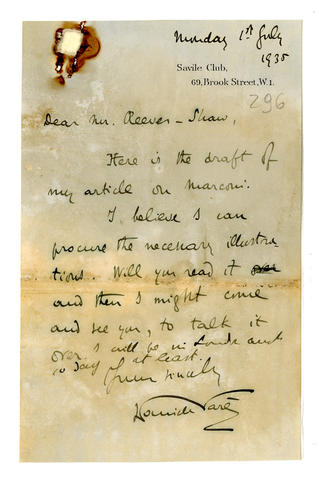 Monday 1st July
1935
Savile Club,
69, Brook Street, W.1.
296
Dear Mr. Reeves-Shaw,
Here is the draft of
my article on Marconi.
I believe I can
procure the necessary illustra-
tions. Will you read it over
and then I might come
and see you, to talk it
over. I will be in London until
to day at least.
Yours sincerely